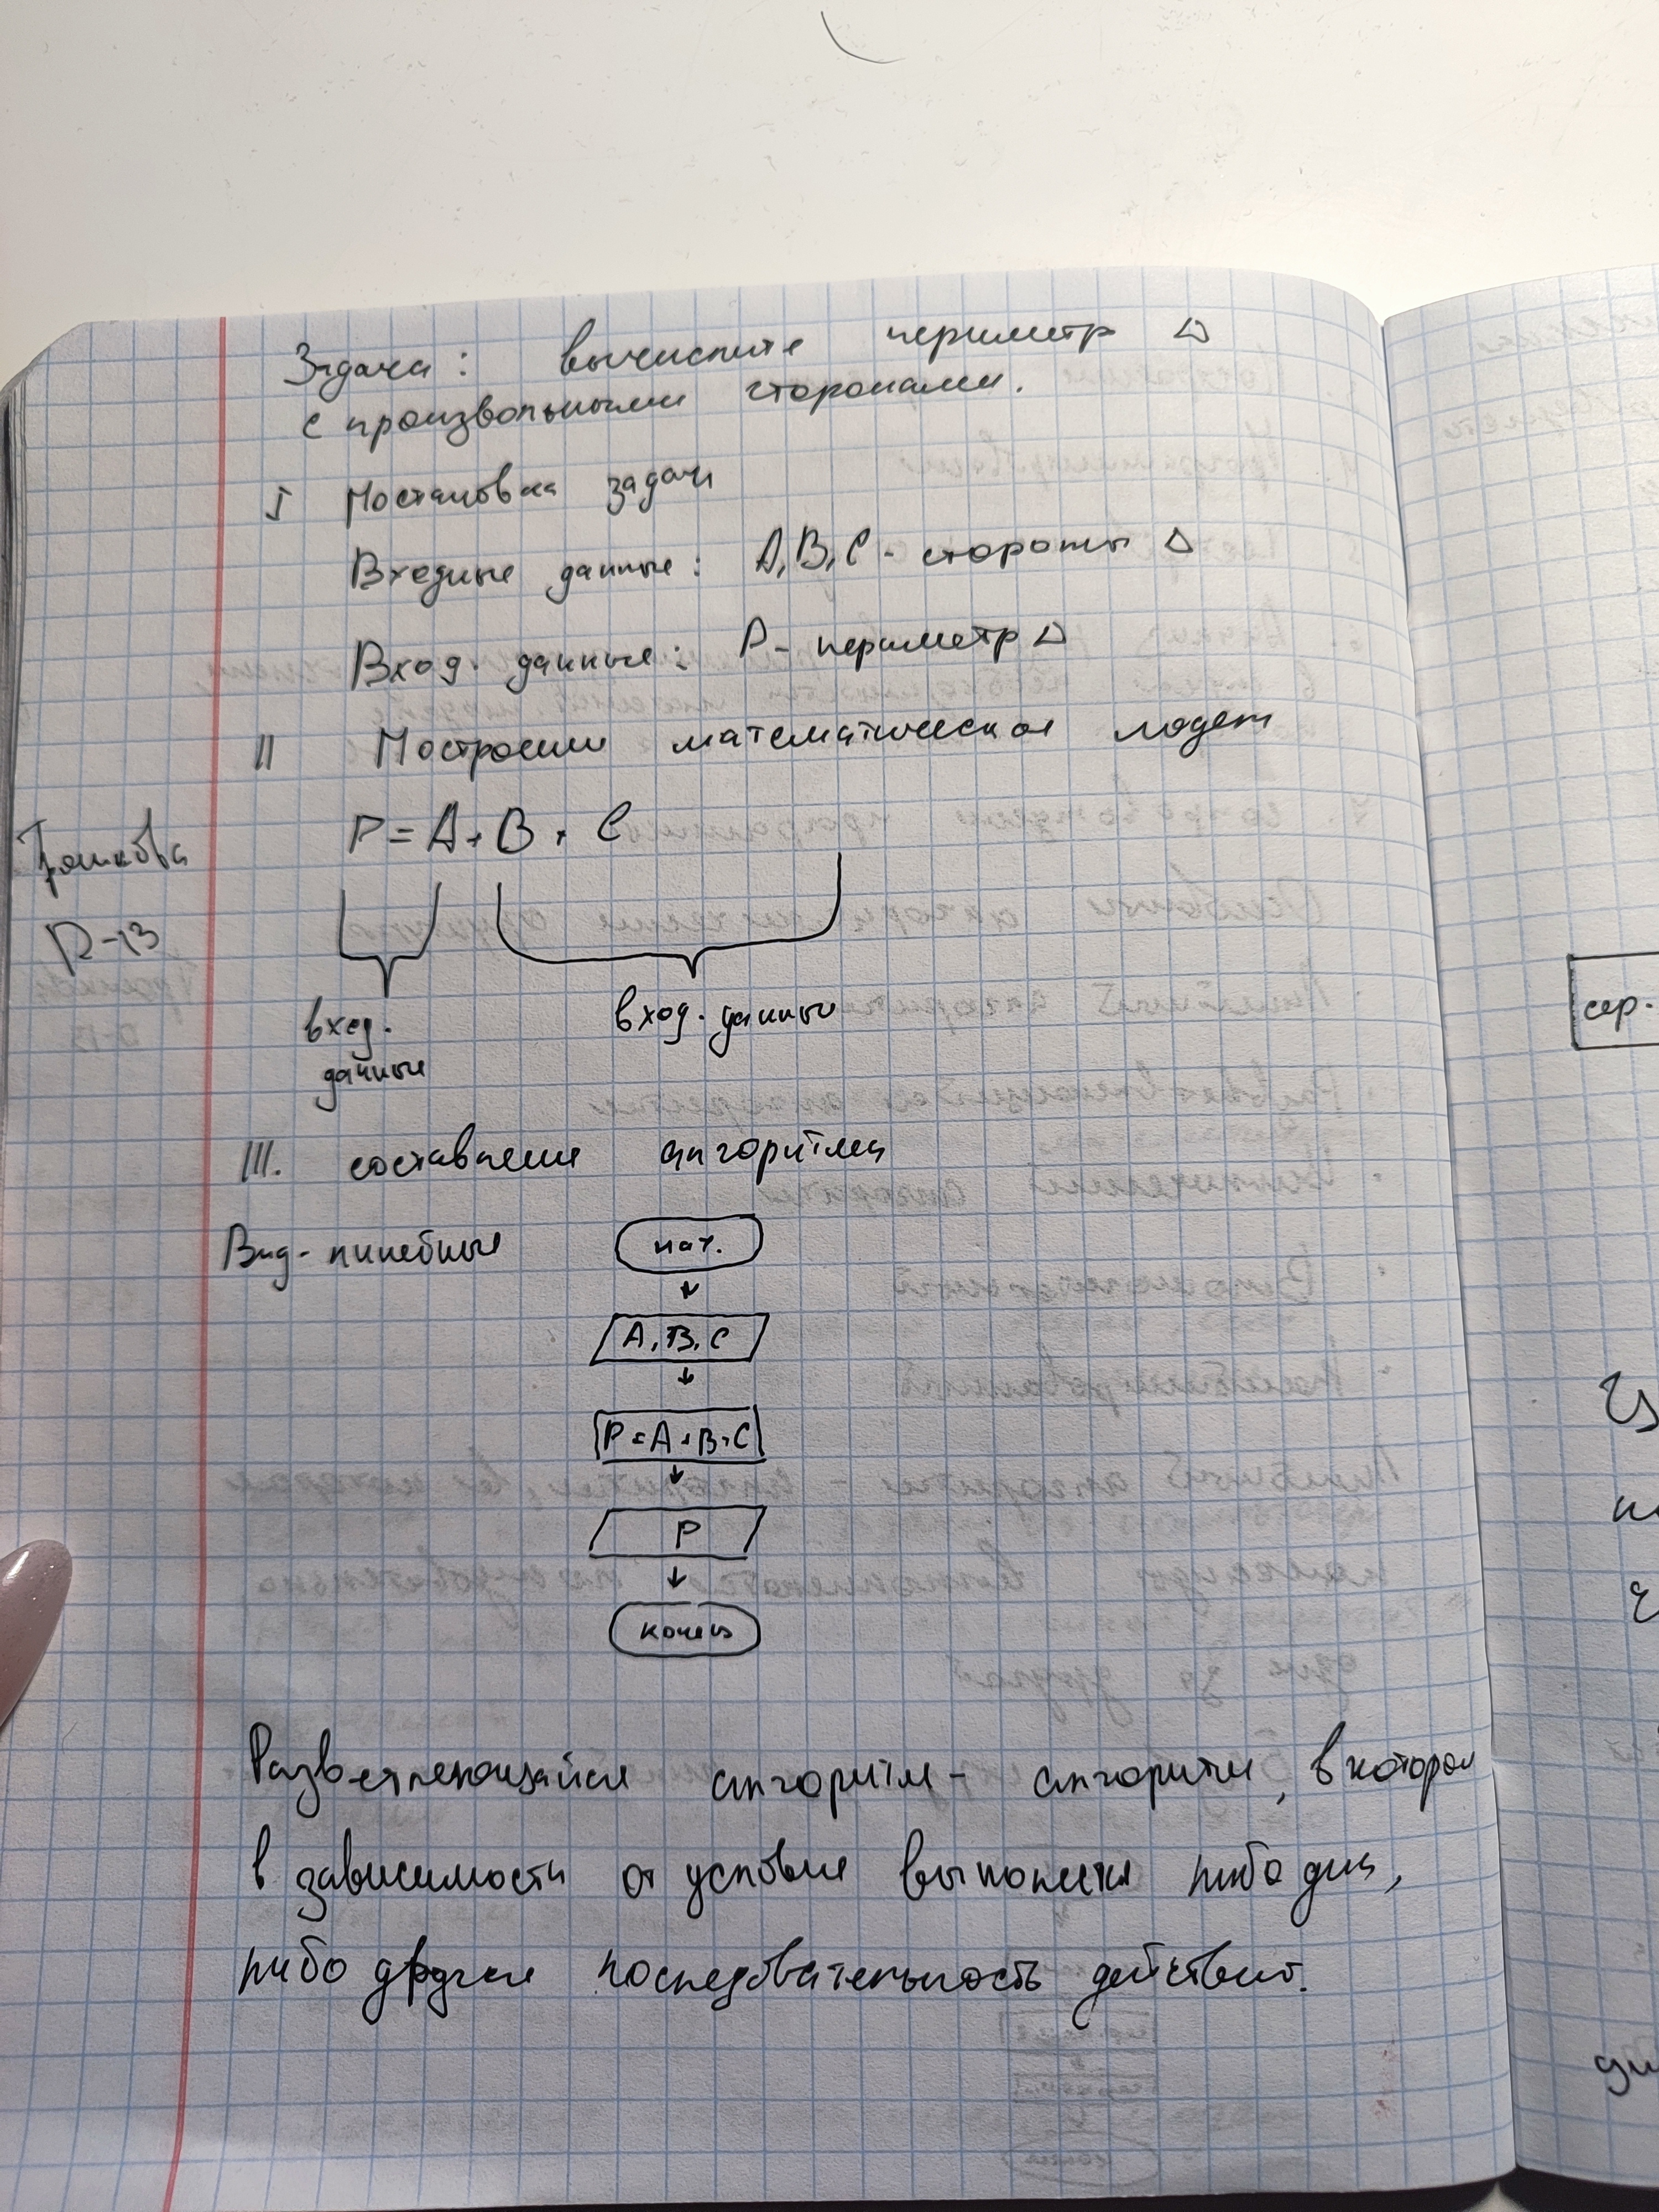 Задача: вычислите периметр △
с произвольными сторонами.
I Постановка задачи
Входные данные: A, B, C - стороны △
Вход. данные: P - периметр △
II Построение математическая модели
P = A + B + C
П-13
вход.
данные
вход. данные
III. составление алгоритма
Вид - линейные
нач.
A, B, C
P = A + B + C
P
конец
Разветвляющийся алгоритм - алгоритм, в котором
в зависимости от условия выполнется либо одна,
либо другая последовательность действий.
сер.